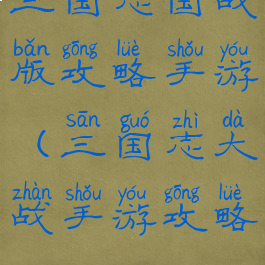 三国志国战
bǎn gōng lüè shǒu yóu
版攻略手游
sān guó zhì dà
（三国志大
zhàn shǒu yóu gōng lüè
战手游攻略